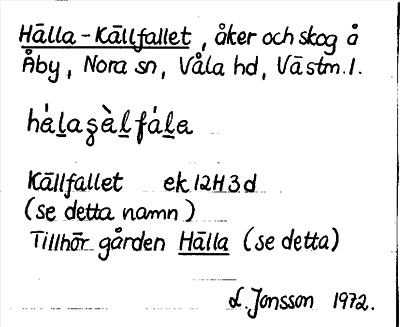 Hälla-Källfallet, åker och skog å
Åby, Nora sn, Våla hd, Västm.l.
hȧḷaʂὲḷfȧḷa
Källfallet ek 12H3d
(se detta namn)
Tillhör gården Hälla (se detta)
L. Jonsson 1972.